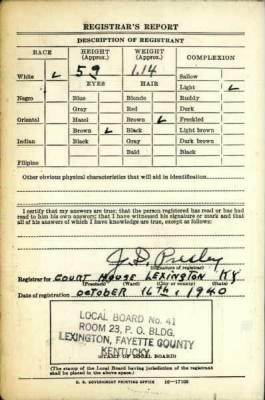 REGISTRAR'S REPORT
DESCRIPTION OF REGISTRANT
RACE HEIGHT (Approx.) WEIGHT (Approx.) COMPLEXION
White ✓ 5 9 1.14 Sallow
EYES HAIR Light ✓
Negro Blue Blonde Ruddy
Gray Red Dark
Oriental Hazel Brown ✓ Freckled
Brown ✓ Black Light brown
Indian Black Gray Dark brown
Bald Black
Filipino
Other obvious physical characteristics that will aid in identification
I certify that my answers are true; that the person registered has read or has had
read to him his own answers; that I have witnessed his signature or mark and that
all of his answers of which I have knowledge are true, except as follows:
(Signature of registrar)
Registrar for COURT HOUSE LEXINGTON KY
(Precinct) (Ward) (City or county) (State)
Date of registration OCTOBER 16th, 1940
LOCAL BOARD No. 41
ROOM 23, P. O. BLDG.
LEXINGTON, FAYETTE COUNTY
KENTUCKY
(STAMP OF LOCAL BOARD)
(The stamp of the Local Board having jurisdiction of the registrant
shall be placed in the above space.)
U. S. GOVERNMENT PRINTING OFFICE 16—17105